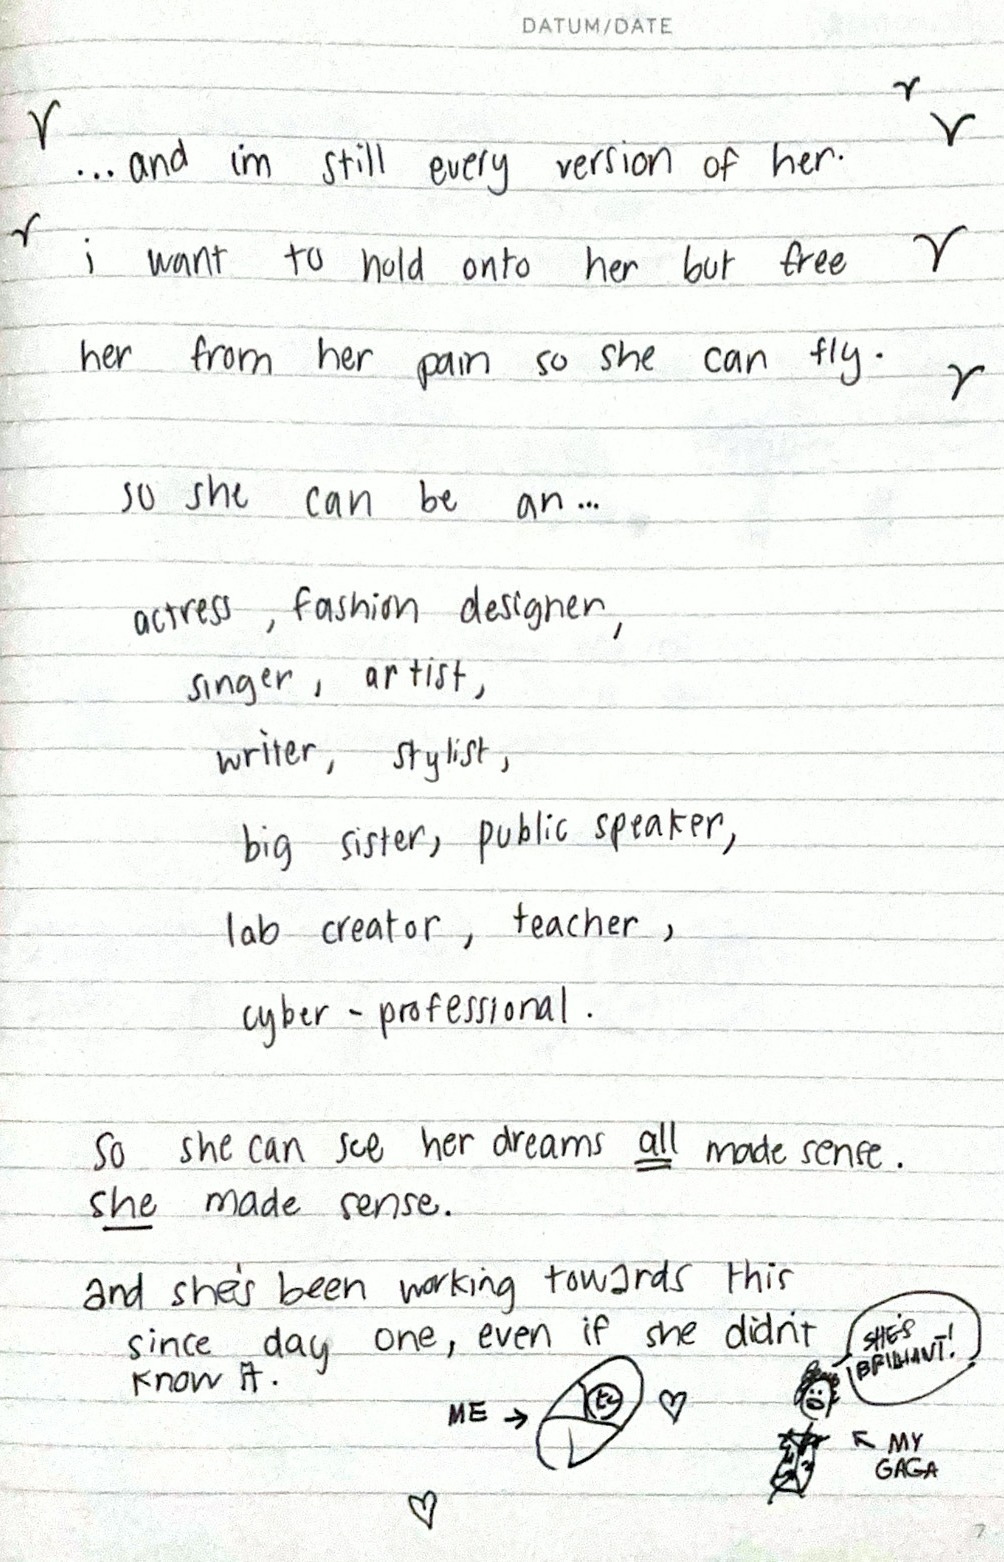 DATUM/DATE
...and im still every version of her.
i want to hold onto her but free
her from her pain so she can fly.
so she can be an...
actress, fashion designer,
singer, artist,
writer, stylist,
big sister, public speaker,
lab creator, teacher,
cyber-professional.
so she can see her dreams all made sense.
she made sense.
and she's been working towards this
since day one, even if she didn't
know it.
SHE'S
BRILLIANT!
ME →
← MY
GAGA
7